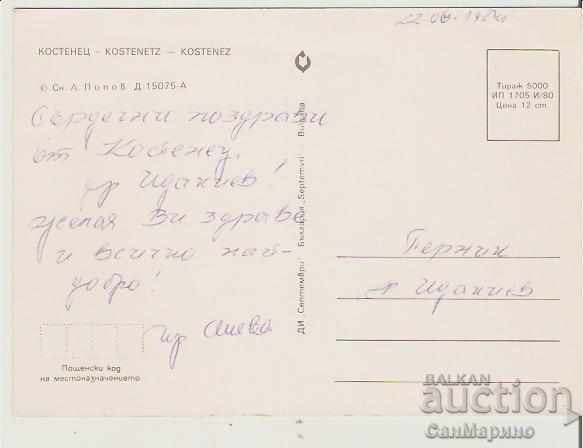 КОСТЕНЕЦ – KOSTENETZ – KOSTENEZ
© Сн. Л. Попов Д 15075-А
Сърдечни поздрави
от Костенец.
др Иданиев!
желая Ви здраве
и всичко най-
добро!
Пощенски код
на местоназначението
ДИ „Септември“ България „Septemvri“ Bulgaria
22.08.198
Тираж 5000
ИП 1705-И/80
Цена 12 ст.
Перник
Иданиев
BALKAN
auction
СанМарино